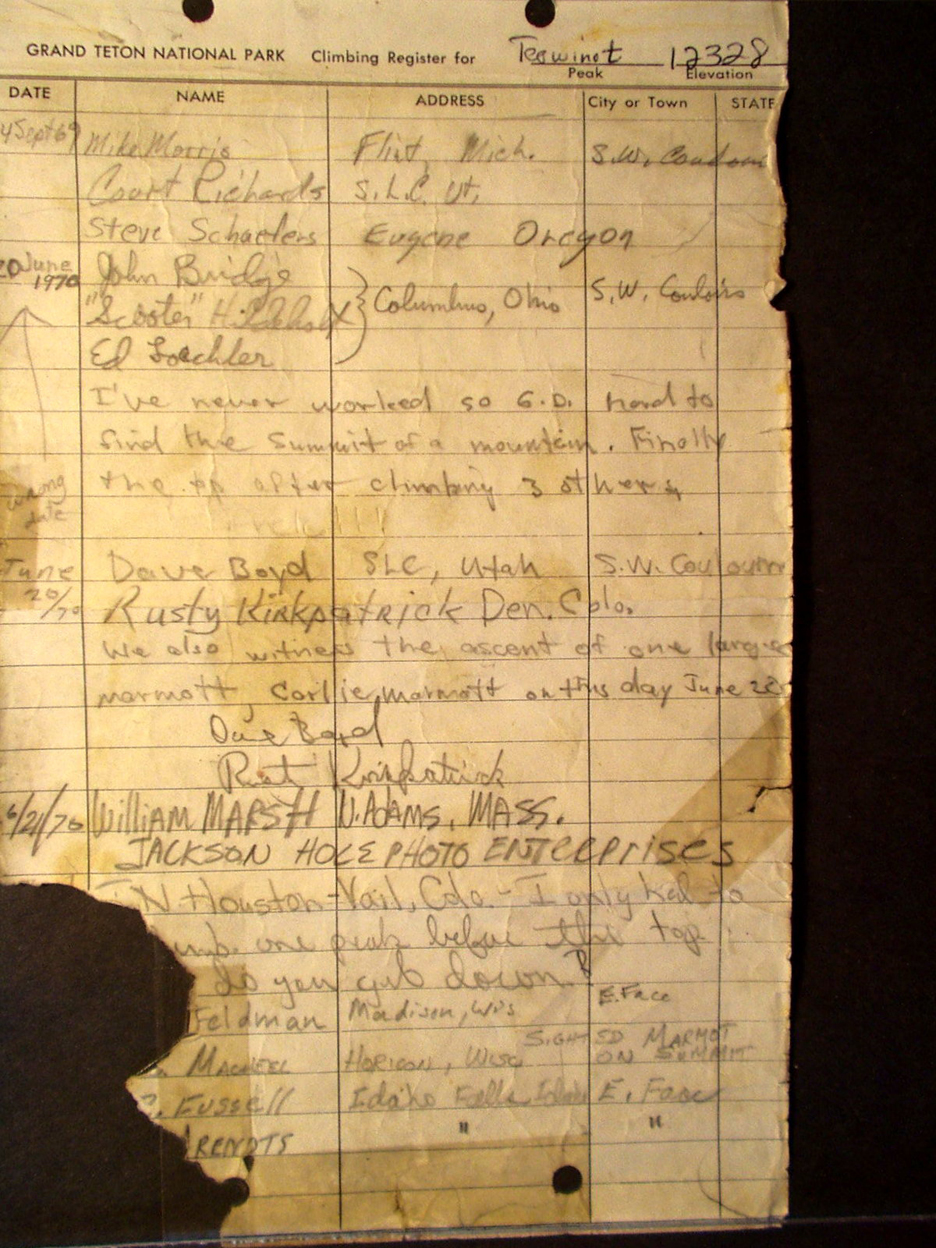 GRAND TETON NATIONAL PARK Climbing Register for Teewinot 12328
Peak Elevation
DATE NAME ADDRESS City or Town STATE
4 Sept 69 Mike Morris Flint, Mich. S.W. Couloir
Court Richards S.L.C. Ut.
Steve Schaefers Eugene Oregon
20 June 1970 John Bridge
"Scooter" Columbus, Ohio S.W. Couloirs
Ed Loechler
I've never worked so G.D. hard to
find the summit of a mountain. Finally
the top after climbing 3 others
wrong date
June 20/70 Dave Boyd SLC, Utah S.W. Couloirs
Rusty Kirkpatrick Den. Colo.
We also witness the ascent of one large
marmott, Carlie marmott on this day June
Dave Boyd
Rust Kirkpatrick
6/21/70 William MARSH N. ADAMS, MASS.
JACKSON HOLE PHOTO ENTERPRISES
N. Houston - Vail, Colo. - I only had to
one peak before the top.
do you get down?
Feldman Madison, Wis E. Face
SIGHTED MARMOT
HORICON, WISC ON SUMMIT
Fussell Idaho Falls Idaho E. Face
ARENDTS " "